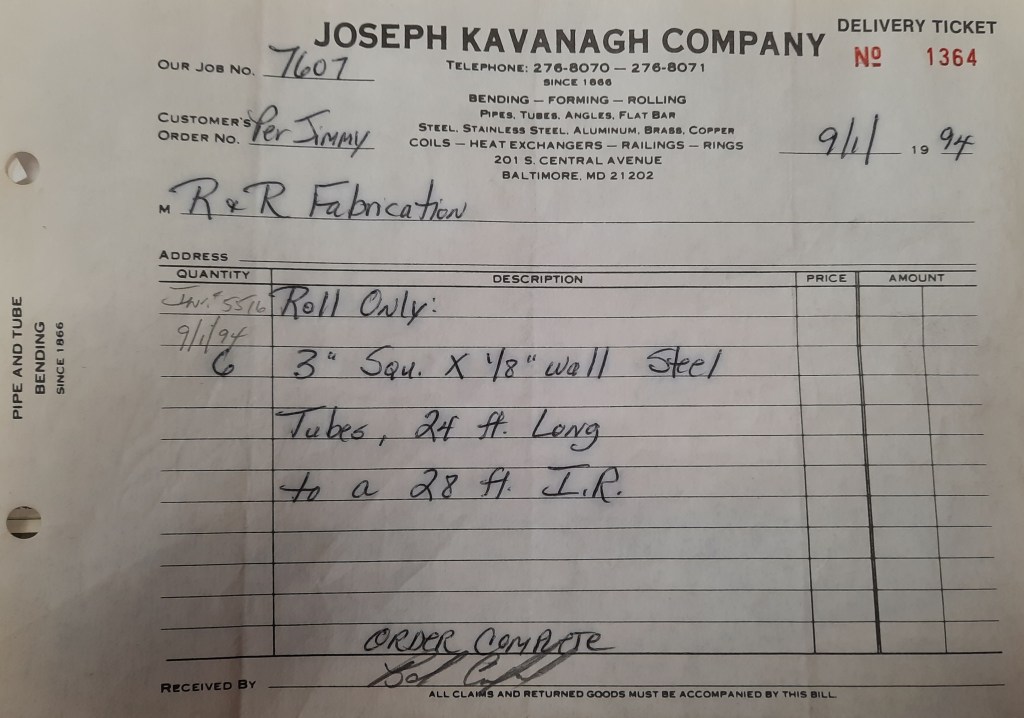 JOSEPH KAVANAGH COMPANY
DELIVERY TICKET
Nº 1364
OUR JOB NO. 7607
TELEPHONE: 276-8070 — 276-8071
SINCE 1866
BENDING — FORMING — ROLLING
PIPES, TUBES, ANGLES, FLAT BAR
STEEL, STAINLESS STEEL, ALUMINUM, BRASS, COPPER
COILS — HEAT EXCHANGERS — RAILINGS — RINGS
201 S. CENTRAL AVENUE
BALTIMORE, MD 21202
CUSTOMER'S
ORDER NO. Per Jimmy
9/1/ 19 94
M R & R Fabrication
ADDRESS
QUANTITY DESCRIPTION PRICE AMOUNT
Inv.# 5516 Roll Only:
9/1/94
6 3" Squ. X 1/8" wall Steel
Tubes, 24 ft. Long
to a 28 ft. I.R.
ORDER COMPLETE
RECEIVED BY
ALL CLAIMS AND RETURNED GOODS MUST BE ACCOMPANIED BY THIS BILL.
PIPE AND TUBE
BENDING
SINCE 1866